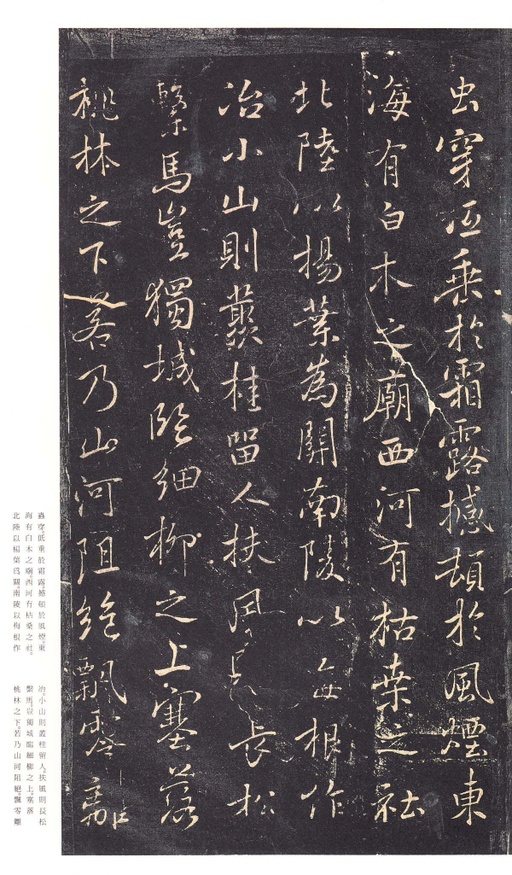 虫穿㢈垂於霜露撼頓於風煙東
海有白木之廟西河有枯桒之社
北陸以揚葉為關南陵以每根作
冶小山則叢桂留人扶風長長松
繫馬豈獨城臨細柳之上塞落
桃林之下若乃山河阻絶飄零離
蟲穿低垂於霜露撼頓於風煙東
海有白木之廟西河有枯桑之社
北陸以楊葉為關南陵以梅根作
冶小山則叢桂留人扶風則長松
繫馬豈獨城臨細柳之上塞落
桃林之下若乃山河阻絶飄零離